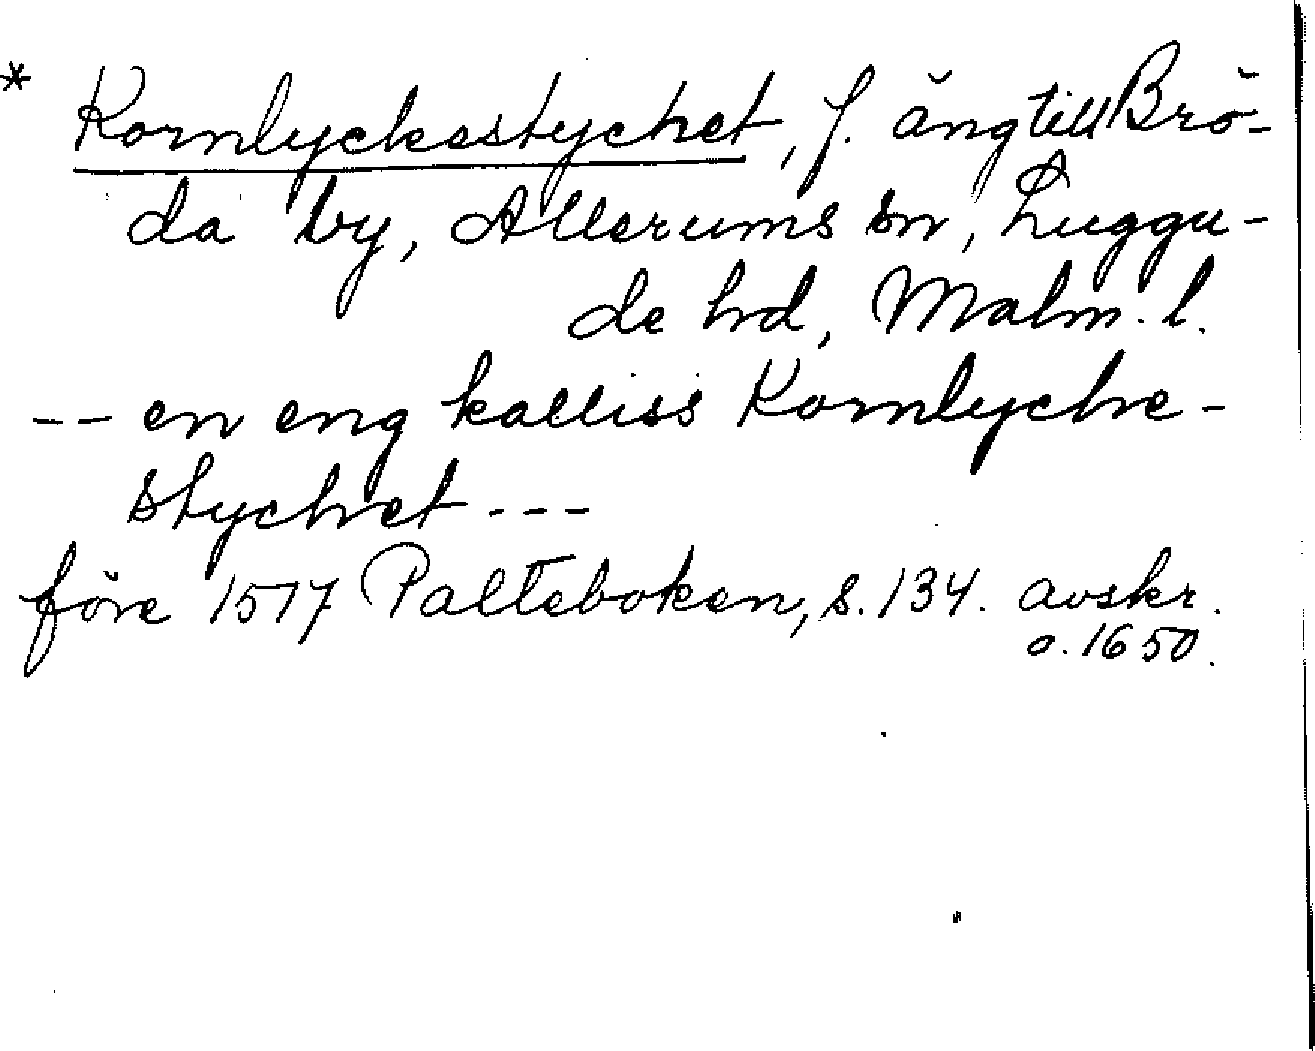 * Kornlyckestycket, f. äng till Brö-
da by, Allerums sn, Luggu-
de hd, Malm. l.
-- en eng kalliss Kornlycke-
stycket ---
före 1517 Palteboken, s. 134. avskr.
o. 1650.